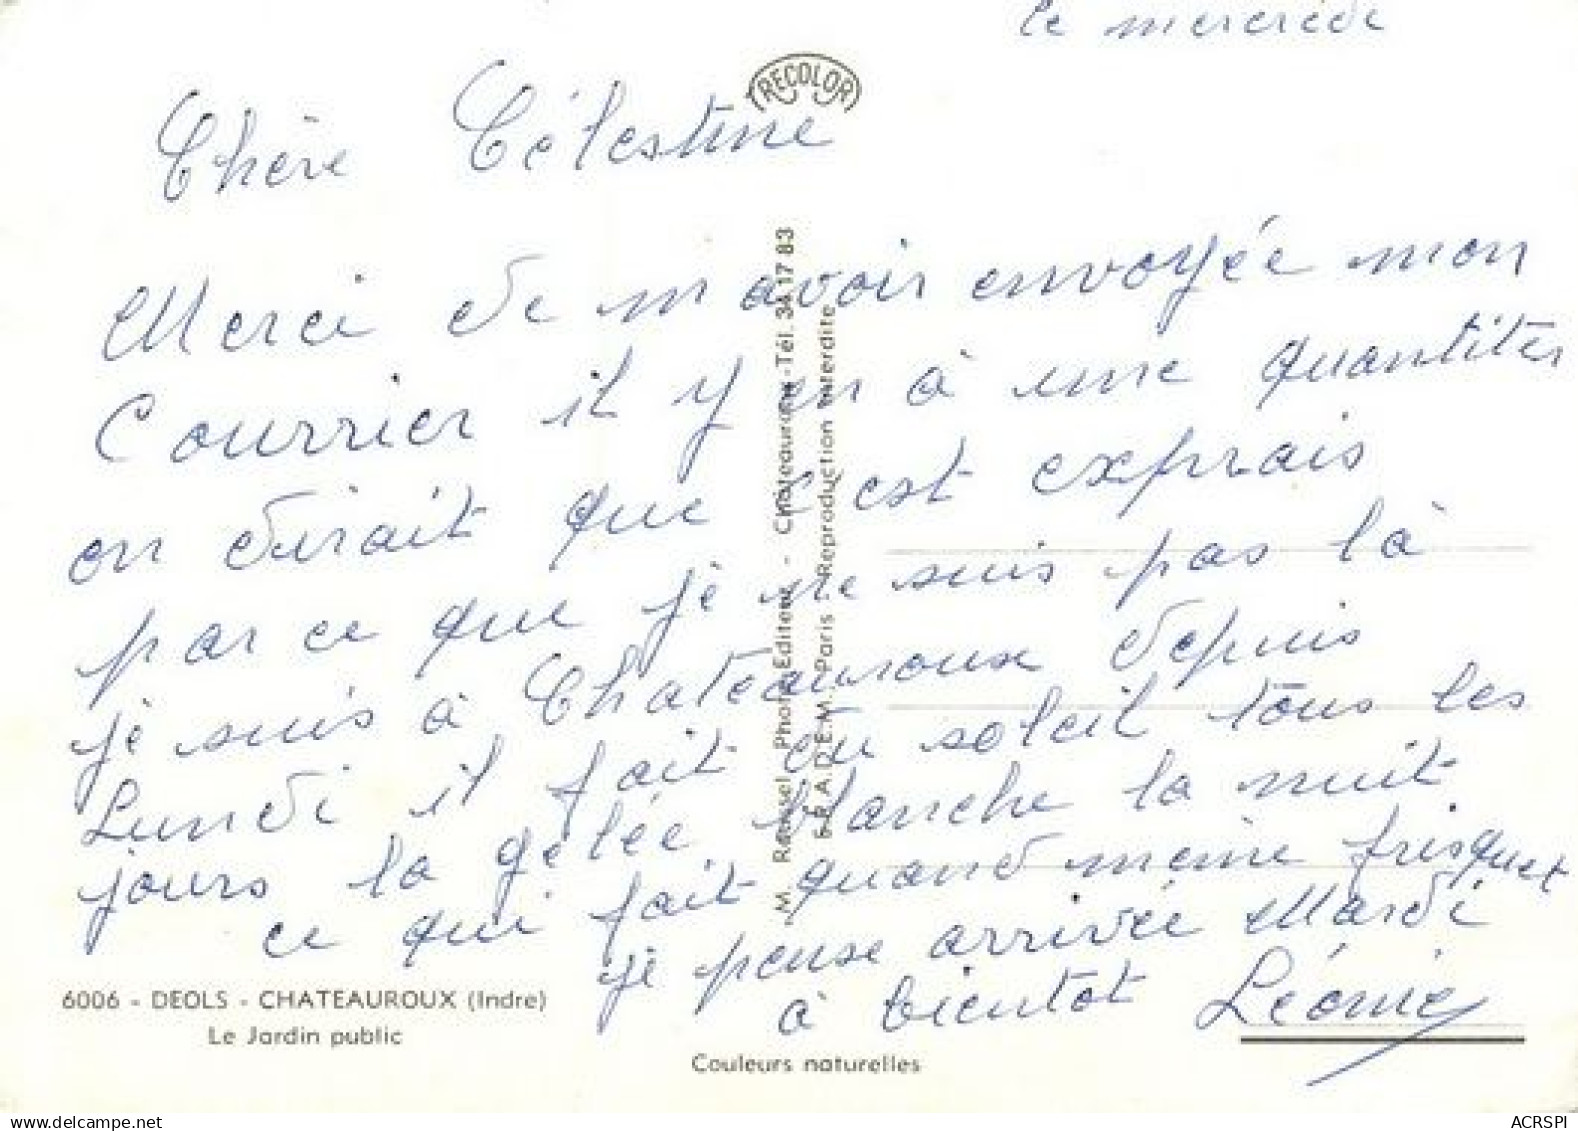 le mercredi
TRECOLOR
Chère Célestine
Merci de m avoir envoyée mon
Courrier il y en à une quantités
on dirait que c'est exprais
par ce que je ne suis pas là
je suis à Chateauroux depuis
Lundi il fait du soleil tous les
jours la gelée blanche la nuit
ce qui fait quand meme frisquet
je pense arrivée Mardi
à bientot Léonie
M. Photo-Editeur - Châteauroux-Tél. 34 17 83
S.R.A.D.E.M. Paris - Reproduction interdite
6006 - DEOLS - CHATEAUROUX (Indre)
Le Jardin public
Couleurs naturelles
delcampe.net
ACRSPI